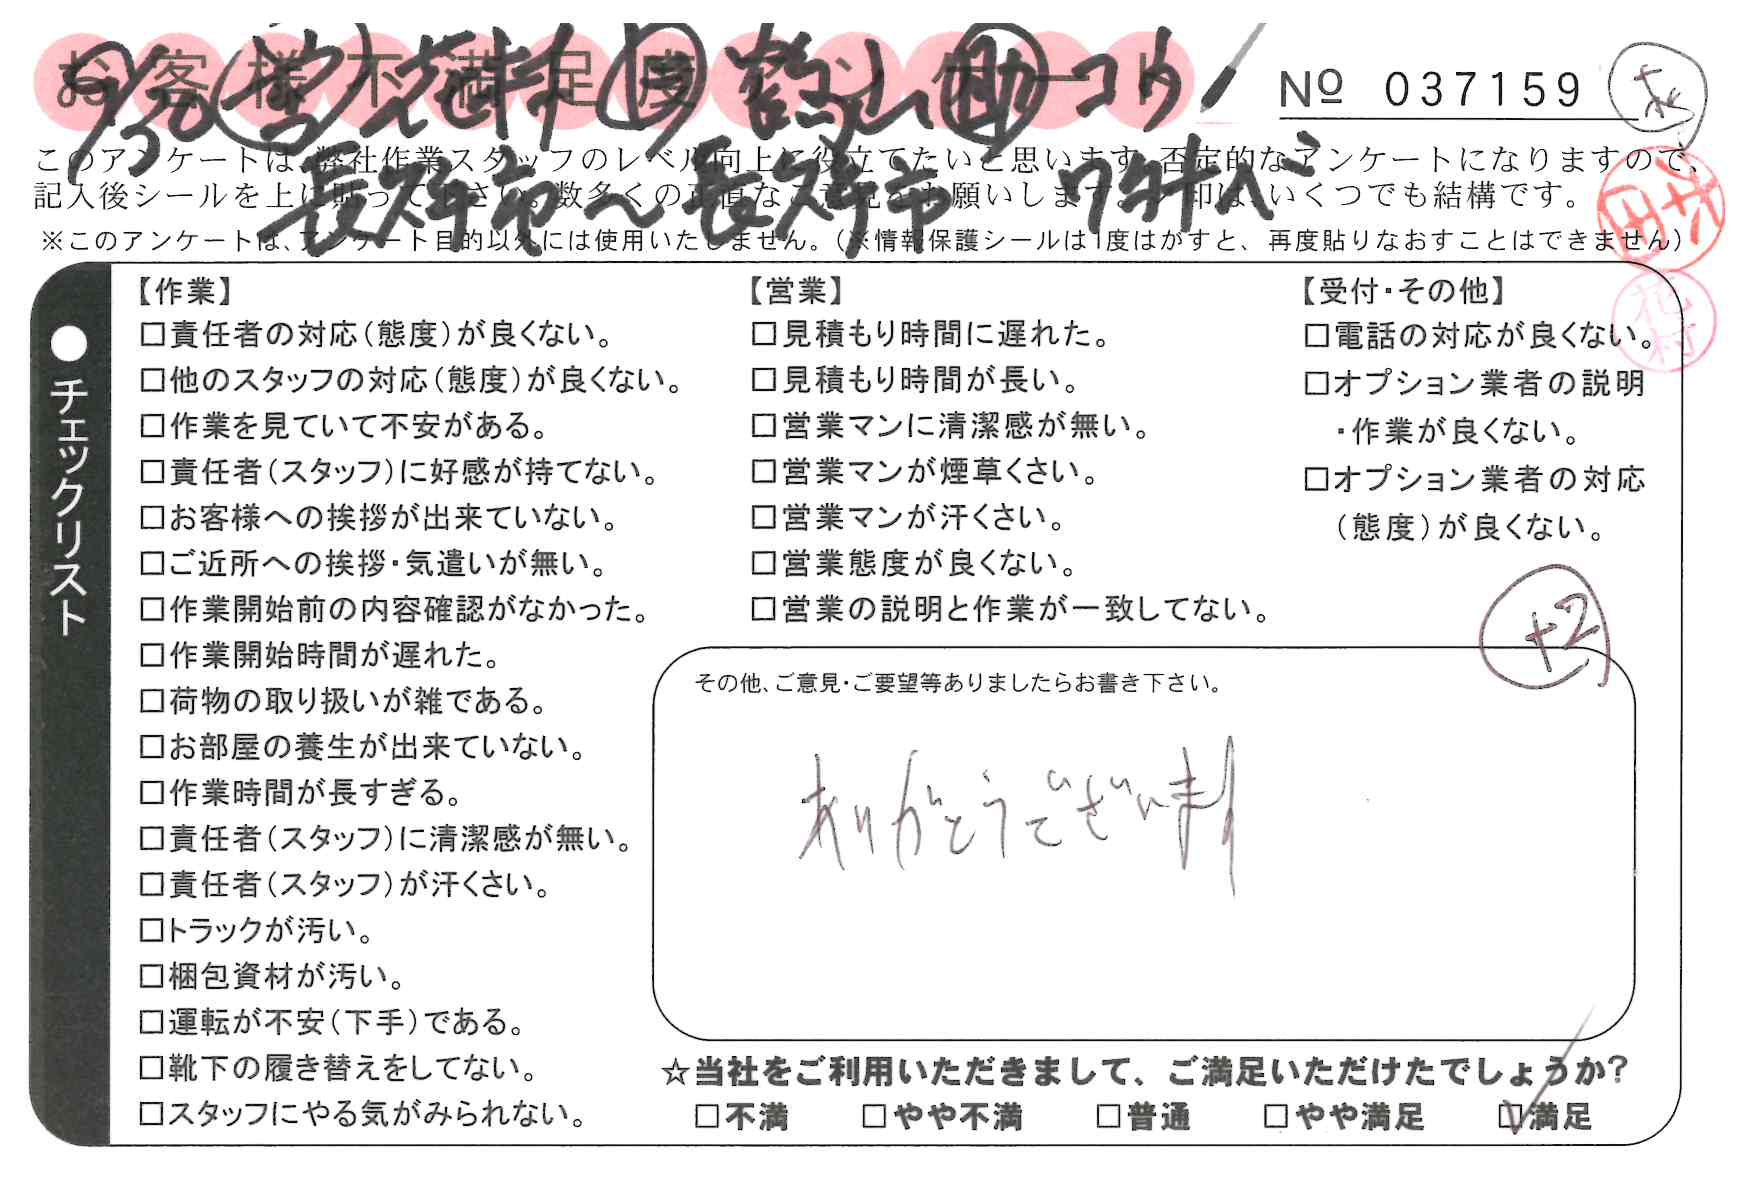 お客様不満足度アンケート
№ 037159
このアンケートは、弊社作業スタッフのレベル向上に役立てたいと思います。否定的なアンケートになりますので、
記入後シールを上に貼って下さい。数多くの正直なご意見をお願いします。レ印は、いくつでも結構です。
長野市〜長野市
※このアンケートは、アンケート目的以外には使用いたしません。(※情報保護シールは1度はがすと、再度貼りなおすことはできません)
花村
●チェックリスト
【作業】
□責任者の対応(態度)が良くない。
□他のスタッフの対応(態度)が良くない。
□作業を見ていて不安がある。
□責任者(スタッフ)に好感が持てない。
□お客様への挨拶が出来ていない。
□ご近所への挨拶・気遣いが無い。
□作業開始前の内容確認がなかった。
□作業開始時間が遅れた。
□荷物の取り扱いが雑である。
□お部屋の養生が出来ていない。
□作業時間が長すぎる。
□責任者(スタッフ)に清潔感が無い。
□責任者(スタッフ)が汗くさい。
□トラックが汚い。
□梱包資材が汚い。
□運転が不安(下手)である。
□靴下の履き替えをしてない。
□スタッフにやる気がみられない。
【営業】
□見積もり時間に遅れた。
□見積もり時間が長い。
□営業マンに清潔感が無い。
□営業マンが煙草くさい。
□営業マンが汗くさい。
□営業態度が良くない。
□営業の説明と作業が一致してない。
【受付・その他】
□電話の対応が良くない。
□オプション業者の説明
・作業が良くない。
□オプション業者の対応
(態度)が良くない。
+2
その他、ご意見・ご要望等ありましたらお書き下さい。
ありがとうございます
☆当社をご利用いただきまして、ご満足いただけたでしょうか?
□不満 □やや不満 □普通 □やや満足 ☑満足